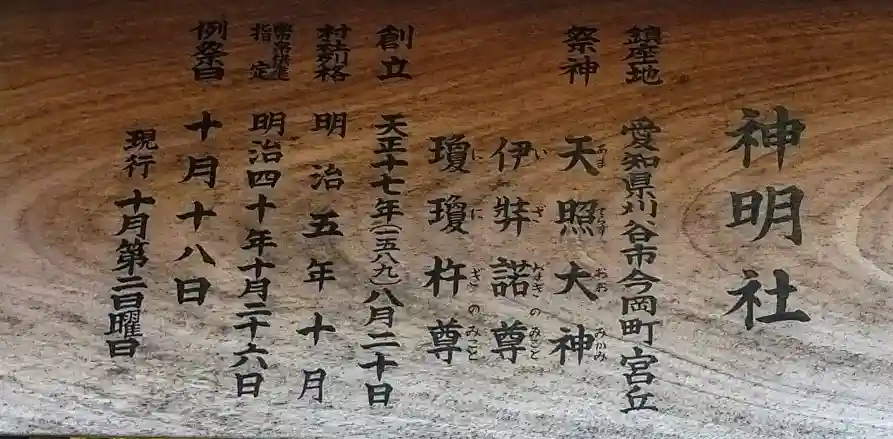 神明社
鎮座地 愛知県刈谷市今岡町宮丘
祭神 天照大神
あま てらす おお みかみ
伊弉諾尊
い ざ なぎ の みこと
瓊瓊杵尊
に に ぎ の みこと
創立 天正十七年(一五八九)八月二十日
村社列格 明治五年十月
幣帛供進指定 明治四十年十月二十六日
例祭日 十月十八日
現行 十月第二日曜日